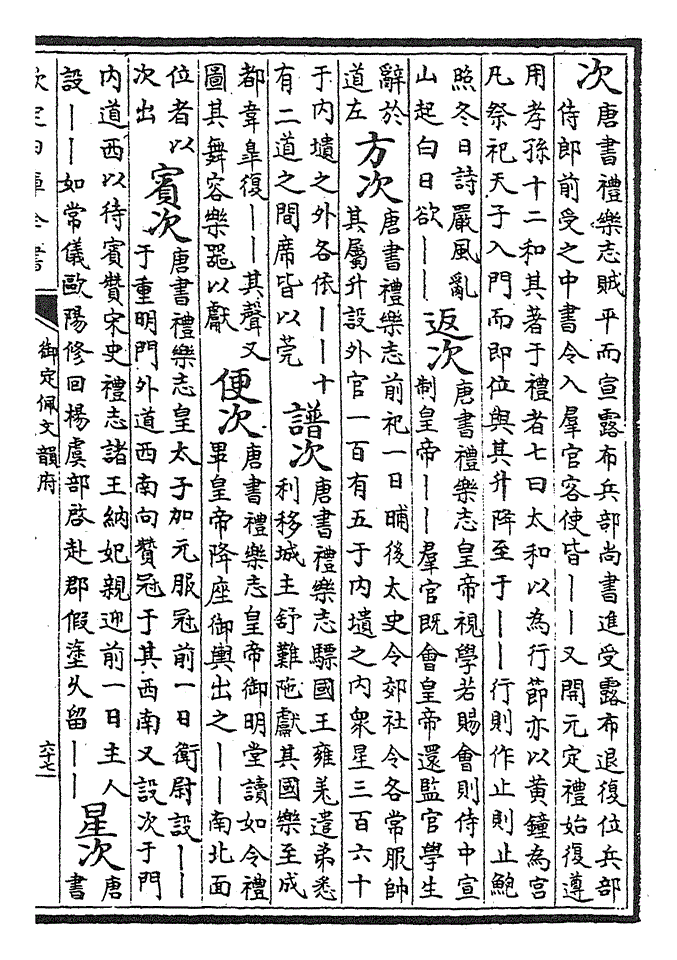 次
唐書禮樂志賊平而宣露布兵部尚書進受露布退復位兵部
侍郎前受之中書令入羣官客使皆——又開元定禮始復遵
用孝孫十二和其著于禮者七曰太和以為行節亦以黃鐘為宮
凡祭祀天子入門而即位與其升降至于——行則作止則止鮑
照冬日詩嚴風亂
山起白日欲——
返次
唐書禮樂志皇帝視學若賜會則侍中宣
制皇帝——羣官既會皇帝還監官學生
辭於
道左
方次
唐書禮樂志前祀一日晡後太史令郊社令各常服帥
其屬升設外官一百有五于內壝之內衆星三百六十
于內壝之外各依——十
有二道之間席皆以莞
譜次
唐書禮樂志驃國王雍羌遣弟悉
利移城主舒難陁獻其國樂至成
都韋臯復——其聲又
圖其舞容樂噐以獻
便次
唐書禮樂志皇帝御明堂讀如令禮
畢皇帝降座御輿出之——南北面
位者以
次出
賓次
唐書禮樂志皇太子加元服冠前一日衛尉設——
于重明門外道西南向贊冠于其西南又設次于門
內道西以待賓贊宋史禮志諸王納妃親迎前一日主人
設——如常儀歐陽修回楊虞部啓赴郡假塗乆留——
星次
唐
書
欽定四庫全書
御定佩文韻府
六十七